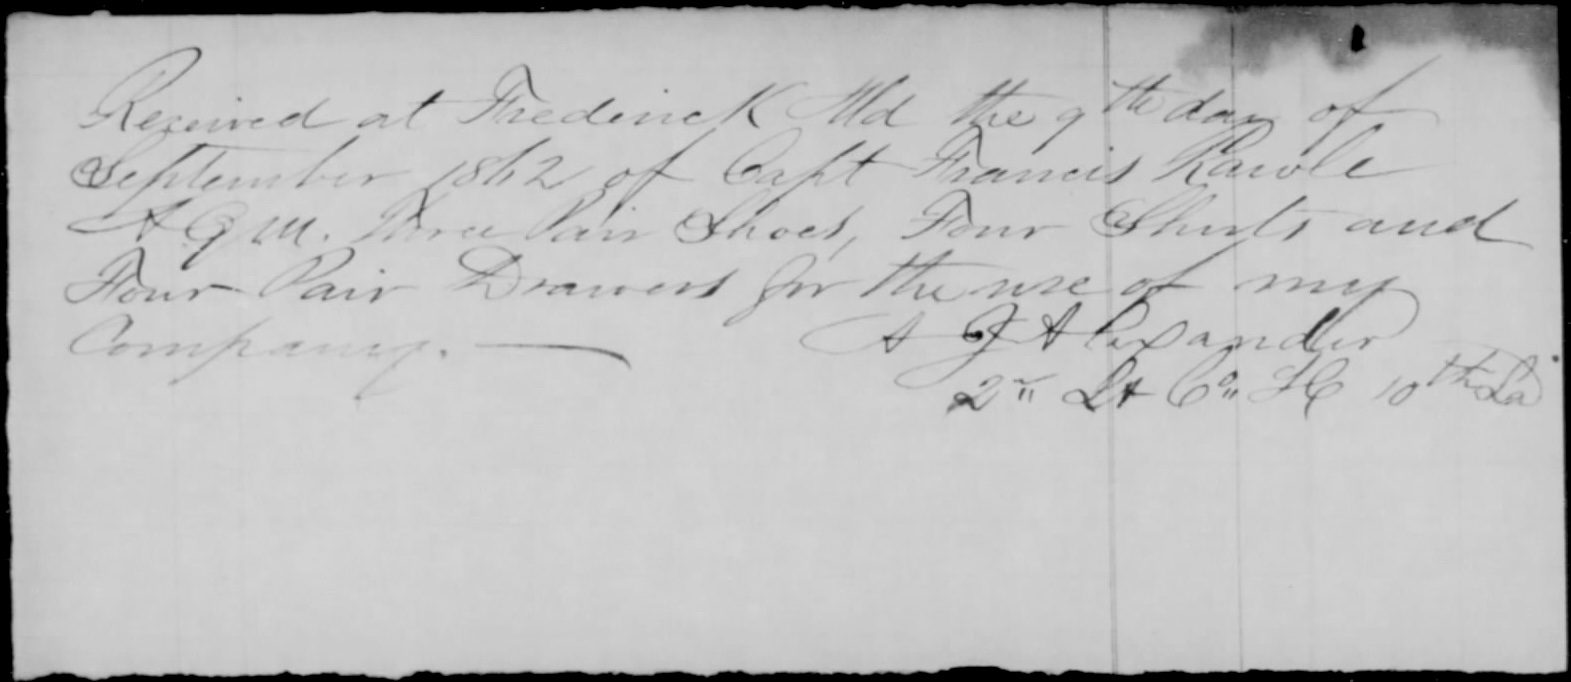 Received at Frederick Md the 9th day of
September 1862 of Capt Francis Rawle
A Q M. Three Pair Shoes, Four Shirts and
Four Pair Drawers for the use of my
Company. —
A J Alexander
2" Lt Co" H 10th La